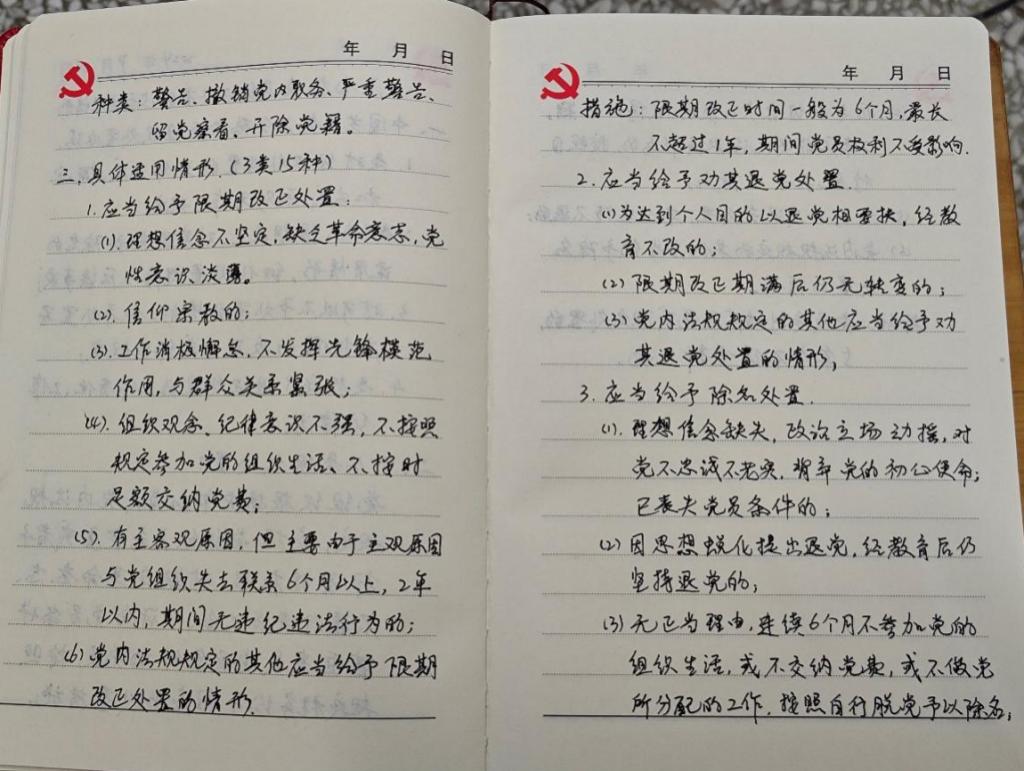 年 月 日
种类：警告、撤销党内职务、严重警告、
留党察看、开除党籍。
三.具体适用情形.(3类15种)
1.应当给予限期改正处置：
(1).理想信念不坚定,缺乏革命意志,党
性意识淡薄。
(2).信仰宗教的;
(3).工作消极懈怠,不发挥先锋模范
作用,与群众关系紧张;
(4).组织观念、纪律意识不强,不按照
规定参加党的组织生活、不按时
足额交纳党费;
(5).有主客观原因,但主要由于主观原因
与党组织失去联系6个月以上,2年
以内,期间无违纪违法行为的;
(6)党内法规规定的其他应当给予限期
改正处置的情形.
年 月 日
措施：限期改正时间一般为6个月,最长
不超过1年,期间党员权利不受影响.
2.应当给予劝其退党处置.
(1)为达到个人目的以退党相要挟,经教
育不改的;
(2)限期改正期满后仍无转变的;
(3)党内法规规定的其他应当给予劝
其退党处置的情形,
3.应当给予除名处置.
(1).理想信念缺失,政治立场动摇,对
党不忠诚不老实,背弃党的初心使命;
已丧失党员条件的;
(2)因思想蜕化提出退党,经教育后仍
坚持退党的;
(3)无正当理由,连续6个月不参加党的
组织生活,或不交纳党费,或不做党
所分配的工作.按照自行脱党予以除名;